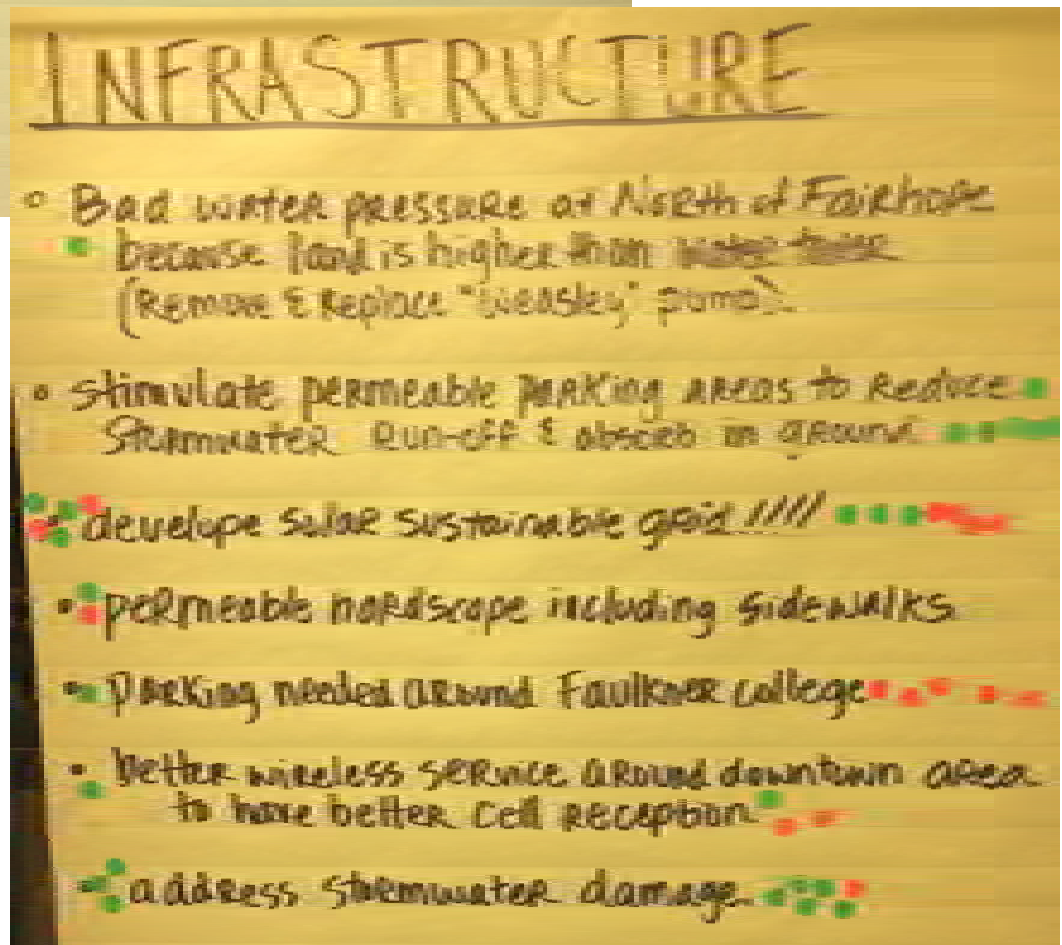 INFRASTRUCTURE
Bad water pressure at North of Fairhope
because land is higher than
(Remove & Replace "Weasley" pump)
stimulate permeable parking areas to Reduce
Stormwater Run-off & absorb in ground
develope solar sustainable grid !!!!
permeable hardscape including sidewalks
parking needed around Faulkner college
better wireless service around downtown area
to have better cell reception
address stormwater damage.